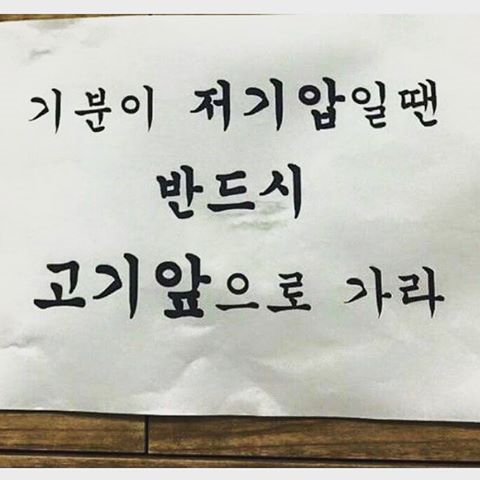 기분이 저기압일땐
반드시
고기앞으로 가라